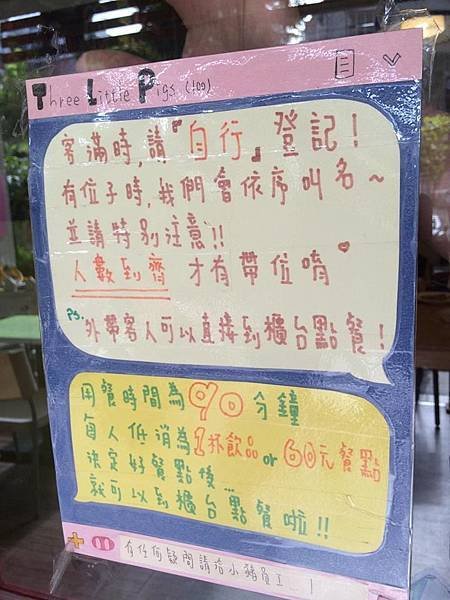 Three Little Pigs (100)
客滿時,請『自行』登記!
有位子時,我們會依序叫名~
並請特別注意!!
人數到齊 才有帶位唷♥
Ps. 外帶客人可以直接到櫃台點餐!
用餐時間為90分鐘
每人低消為1杯飲品or60元餐點
決定好餐點後...
就可以到櫃台點餐啦!!
有任何疑問請洽小豬員工